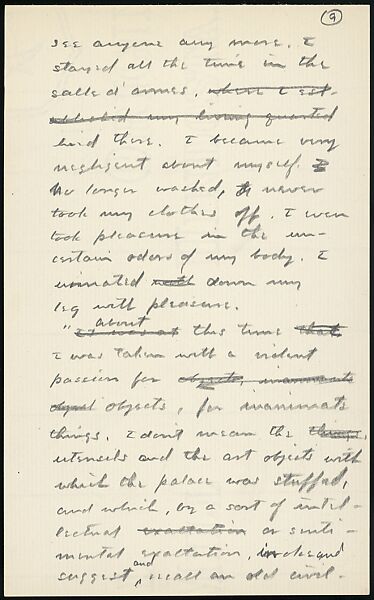 9
see anyone any more. I
stayed all the time in the
salle d'armes, where I est-
ablished my living quarted
lived there. I became very
negligent about myself. I
No longer washed, I never
took my clothes off. I even
took pleasure in the un-
certain odors of my body. I
urinated with down my
leg with pleasure.
" It was at about this time that
I was taken with a violent
passion for objects, inanimate
objects, for inanimate
things. I don't mean the things,
utensils and the art objects with
which the palace was stuffed,
and which, by a sort of intel-
lectual exaltation or senti-
mental exaltation, invoke and
suggest, and recall an old civil-